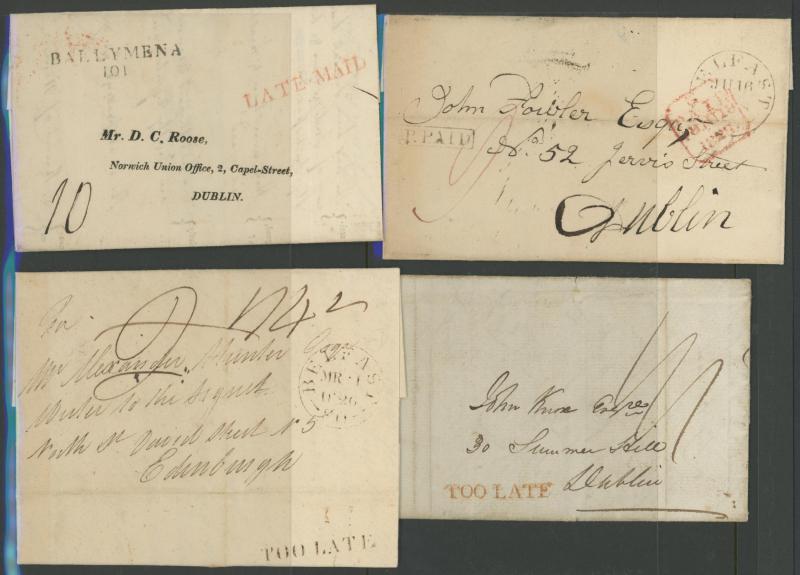 BALLYMENA
101
LATE MAIL
Mr. D. C. Roose,
Norwich Union Office, 2, Capel-Street,
DUBLIN.
10
BELFAST
JU 16
John Fowler Esqr
P. PAID
No. 52 Jervis Street
Dublin
For
Mr Alexander Hunter Esqr
Writer to the Signet
North St David Street No 5
Edinburgh
BELFAST
MR
TOO LATE
John Knox Esqre
30 Summer Hill
Dublin
TOO LATE